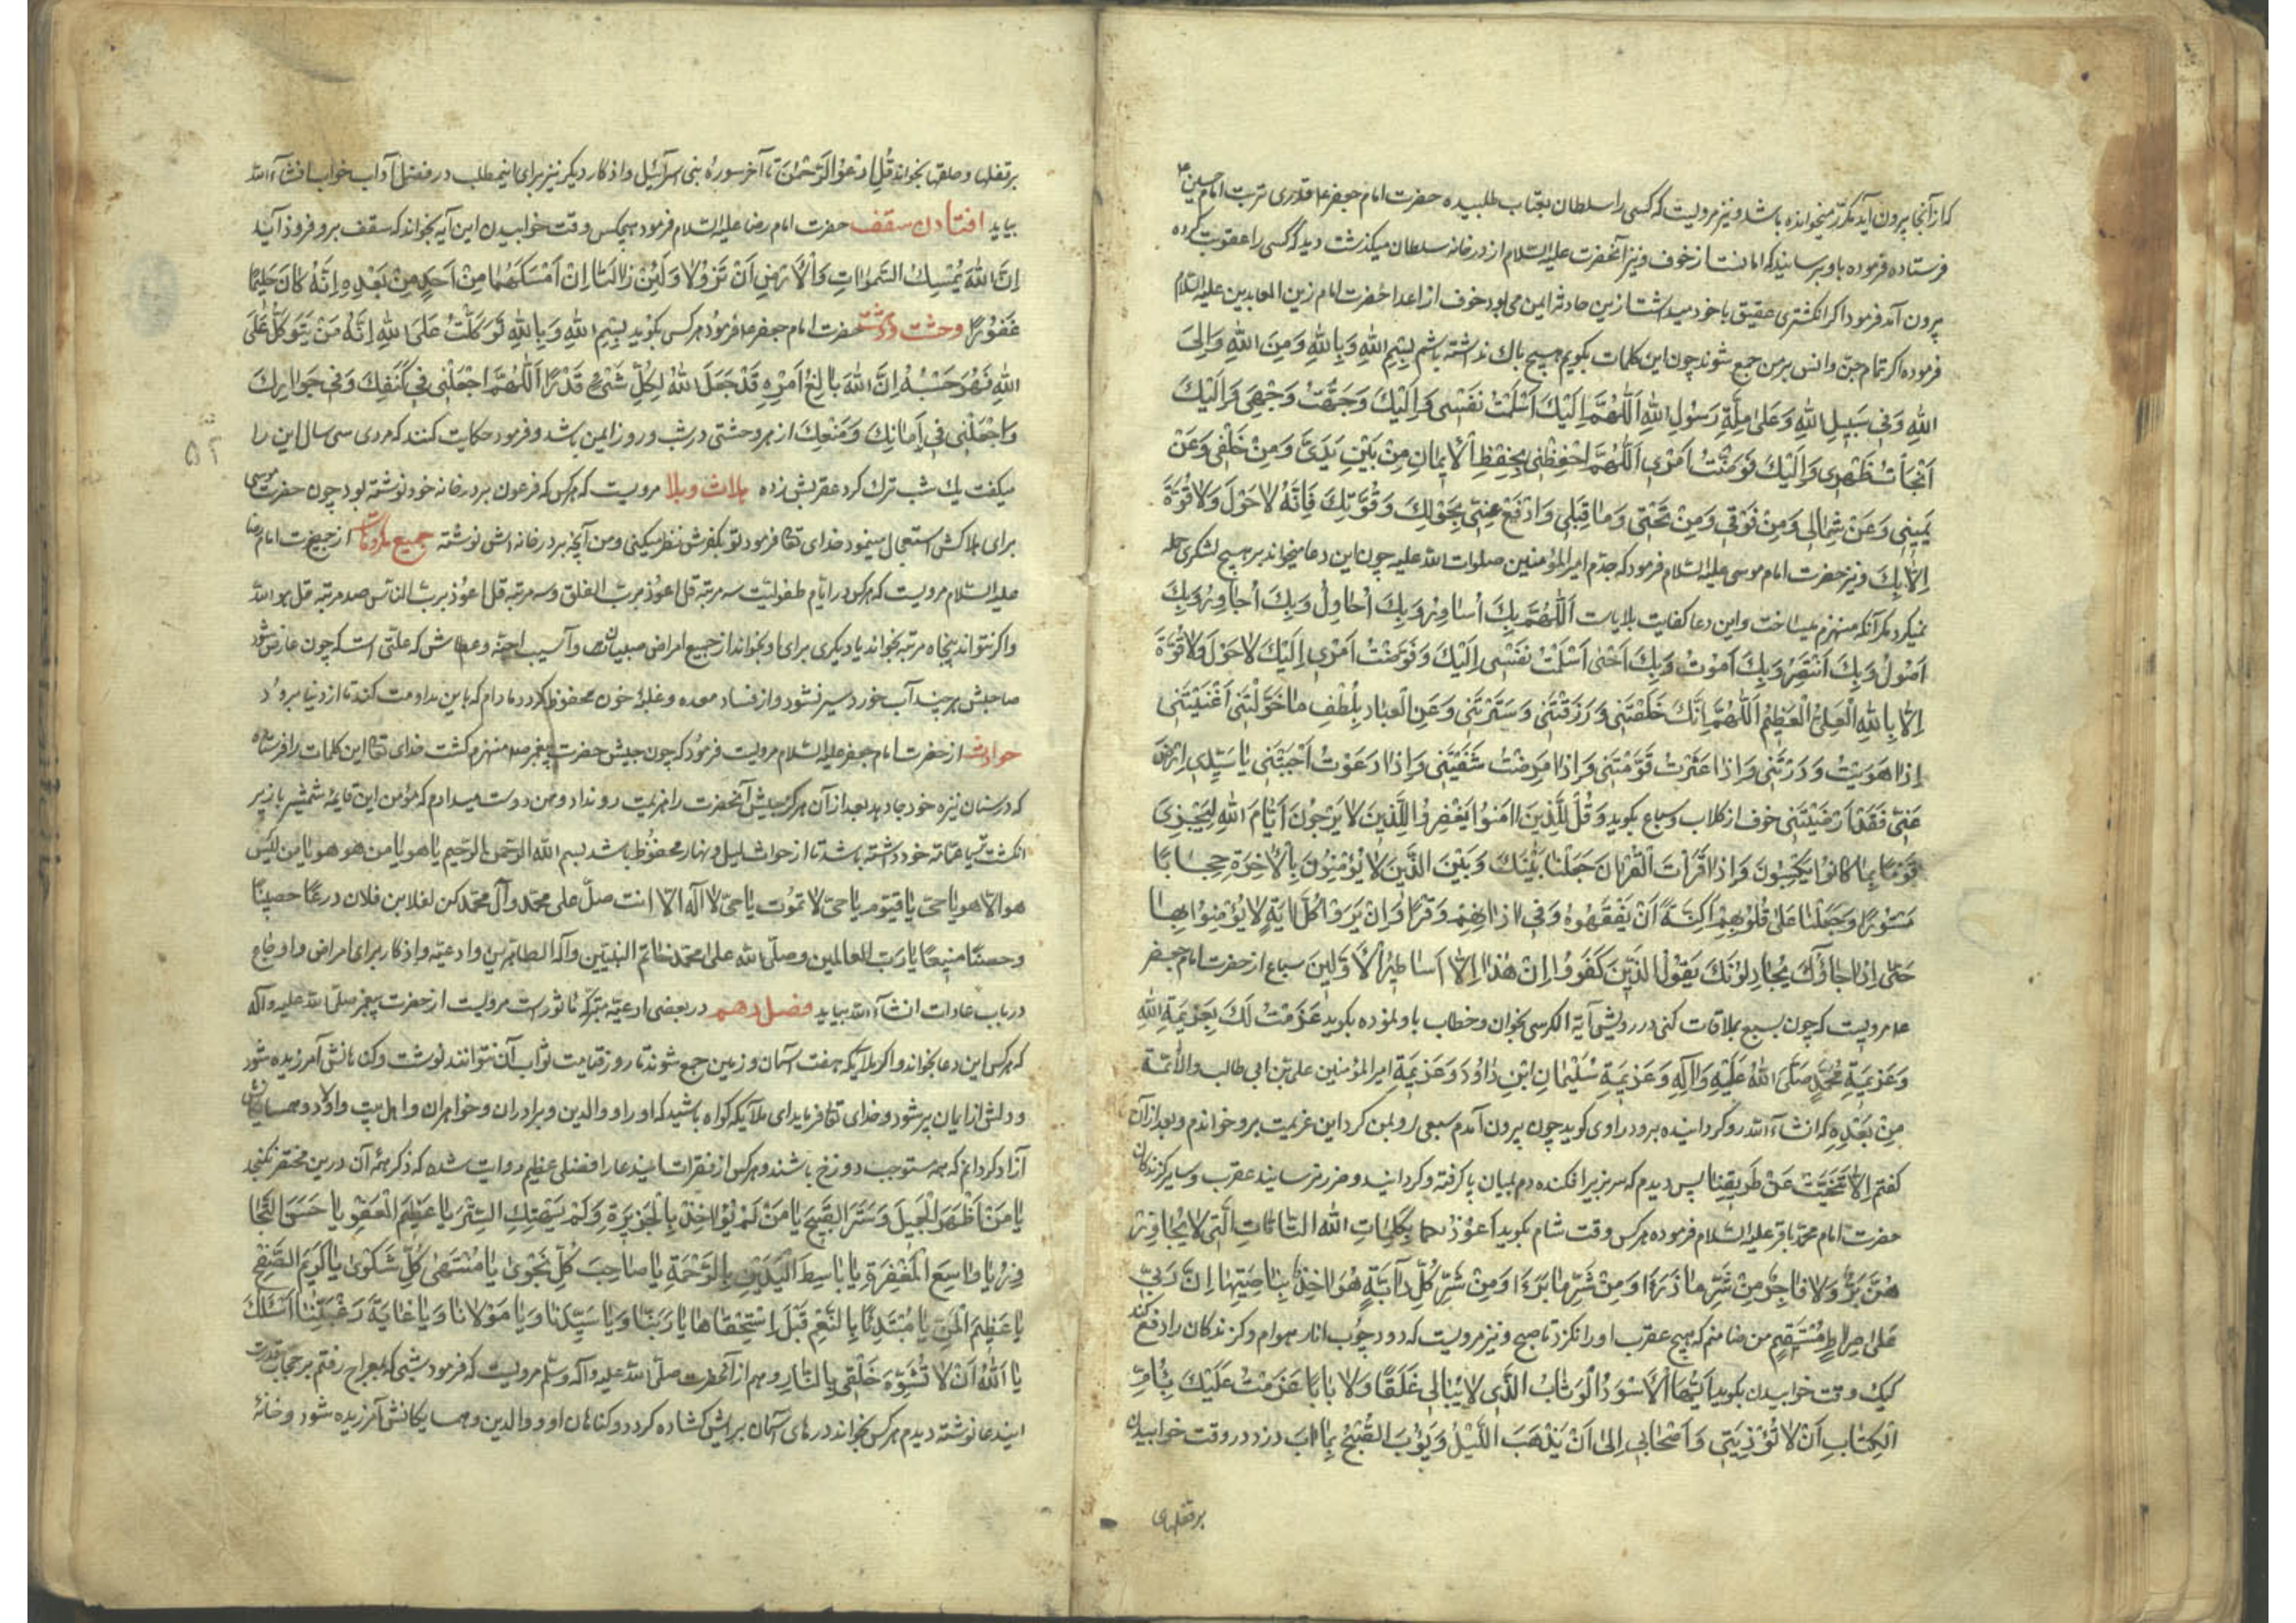 که از آنجا بیرون آید مکرر میخوانده باشد و نیز مرویست که کسی را سلطان بعتاب طلبیده حضرت امام جعفر ع قدری تربت امام حسین ع
فرستاده فرموده باو برسانید که امانست از خوف و نیز آنحضرت علیه السلام از در خانه سلطان میگذشت دید که کسی را عقوبت کرده
بیرون آمد فرمود اگر انگشتری عقیق با خود میداشت ازین حادثه ایمن می بود خوف از اعدا حضرت امام زین العابدین علیه السلام
فرموده اگر تمام جن و انس بر من جمع شوند چون این کلمات بگویم هیچ باک نداشته باشم بِسْمِ اللهِ وَبِاللهِ وَمِنَ اللهِ وَاِلَی
اللهِ وَفی سَبیلِ اللهِ وَعَلی مِلَّةِ رَسُولِ اللهِ اَللّهُمَّ اِلَیْكَ اَسْلَمْتُ نَفْسی وَاِلَیْكَ وَجَّهْتُ وَجْهی وَاِلَیْكَ
اَلْجَأتُ ظَهْری وَاِلَیْكَ فَوَّضْتُ اَمْری اَللّهُمَّ احْفِظْنی بِحِفْظِ الْاِیمانِ مِنْ بَیْنِ یَدَیَّ وَمِنْ خَلْفی وَعَنْ
یَمینی وَعَنْ شِمالی وَمِنْ فَوْقی وَمِنْ تَحْتی وَما قِبَلی وَادْفَعْ عَنّی بِحَوْلِكَ وَقُوَّتِكَ فَاِنَّهُ لا حَوْلَ وَلا قُوَّةَ
اِلّا بِكَ و نیز حضرت امام موسی علیه السلام فرمود که جدم امیر المؤمنین صلوات الله علیه چون این دعا میخواند بر هیچ لشکری حمله
نمیکرد مگر آنکه منهزم میساخت و این دعا کفایت بلایات اَللّهُمَّ بِكَ اُساوِرُ وَبِكَ اُحاوِلُ وَبِكَ اُجاوِرُ وَبِكَ
اَصُولُ وَبِكَ اَنْتَصِرُ وَبِكَ اَمُوتُ وَبِكَ اَحْیی اَسْلَمْتُ نَفْسی اِلَیْكَ وَفَوَّضْتُ اَمْری اِلَیْكَ لا حَوْلَ وَلا قُوَّةَ
اِلّا بِاللهِ الْعَلِیِّ الْعَظیمِ اَللّهُمَّ اِنَّكَ خَلَقْتَنی وَرَزَقْتَنی وَسَتَرْتَنی وَعَنِ الْعِبادِ بِلُطْفِ ما خَوَّلْتَنی اَغْنَیْتَنی
اِذا هَوَیْتُ وَرَدَدْتَنی وَاِذا عَثَرْتُ قَوَّمْتَنی وَاِذا مَرِضْتُ شَفَیْتَنی وَاِذا دَعَوْتُ اَجَبْتَنی یا سَیِّدی اِرْضَ
عَنّی فَقَدْ اَرْضَیْتَنی خوف از کلاب و سباع بگوید وَقُلْ لِلَّذینَ امَنُوا یَغْفِرُوا لِلَّذینَ لا یَرْجُونَ اَیّامَ اللهِ لِیَجْزِیَ
قَوْمًا بِما کانُوا یَکْسِبُونَ وَاِذا قَرَأْتَ الْقُرْانَ جَعَلْنا بَیْنَكَ وَبَیْنَ الَّذینَ لا یُؤْمِنُونَ بِالْاخِرَةِ حِجابًا
مَسْتُورًا وَجَعَلْنا عَلی قُلُوبِهِمْ اَکِنَّةً اَنْ یَفْقَهُوهُ وَفی اذانِهِمْ وَقْرًا وَاِنْ یَرَوْا کُلَّ ایَةٍ لا یُؤْمِنُوا بِها
حَتّی اِذا جاؤُكَ یُجادِلُونَكَ یَقُولُ الَّذینَ کَفَرُوا اِنْ هذا اِلّا اَساطیرُ الْاَوَّلینَ سباع از حضرت امام جعفر
ع مرویست که چون بسبع ملاقات کنی در رویش آیة الکرسی بخوان و خطاب باو نموده بگوید عَزَمْتُ لَكَ بِعَزیمَةِ اللهِ
وَعَزیمَةِ مُحَمَّدٍ صَلَّی اللهُ عَلَیْهِ وَالِهِ وَعَزیمَةِ سُلَیْمانِ ابْنِ داوُدَ وَعَزیمَةِ امیر المؤمنین علی بن ابی طالب والائمة
مِنْ بَعْدِهِ که انشاء الله رو گردانیده برود راوی گوید چون بیرون آمدم سبعی رو بمن کرد این عزیمت برو خواندم و بعد از آن
گفتم اِلّا تَنَحَّیْتَ عَنْ طَریقِنا پس دیدم که سر بزیر افکنده دم بمیان پا گرفته و گردانید و ضرر نرسانید عقرب و سایر گزندگان
حضرت امام محمد باقر علیه السلام فرموده هر کس وقت شام بگوید اَعُوذُ بِکَلِماتِ اللهِ التّامّاتِ الَّتی لا یُجاوِزُ
هُنَّ بَرٌّ وَلا فاجِرٌ مِنْ شَرِّ ما ذَرَءَ وَمِنْ شَرِّ ما بَرَءَ وَمِنْ شَرِّ کُلِّ دآبَّةٍ هُوَ اخِذٌ بِناصِیَتِها اِنَّ رَبّی
عَلی صِراطٍ مُسْتَقیمٍ من ضامنم که هیچ عقرب او را نگزد تا صبح و نیز مرویست که دود چوب انار هوام و گزندگان را دفع کند
کیک وقت خوابیدن بگوید اَیُّهَا الْاَسْوَدُ الْوَثّابُ الَّذی لا یُبالی غَلَقًا وَلا بابًا عَزَمْتُ عَلَیْكَ بِاُمِّ
الْکِتابِ اَنْ لا تُؤْذِیَنی وَاَصْحابی اِلی اَنْ یَذْهَبَ اللَّیْلُ وَیَؤُبَ الصُّبْحُ بِما ابَ دزد در وقت خوابیدن
بر قفلهای
بر قفلها و حلقها بخواند قُلِ ادْعُوا الرَّحْمنَ تا آخر سورهٔ بنی اسرآئیل و اذکار دیگر نیز برای اینمطلب در فصل آداب خواب انشاء الله
بیاید افتادن سقف حضرت امام رضا علیه السلام فرمود هیچکس وقت خوابیدن این آیه بخواند که سقف برو فرود آید
اِنَّ اللهَ یُمْسِكُ السَّمواتِ وَالْاَرْضِ اَنْ تَزُولا وَلَئِنْ زالَتا اِنْ اَمْسَکَهُما مِنْ اَحَدٍ مِنْ بَعْدِهِ اِنَّهُ کانَ حَلیمًا
غَفُورًا وحشت حضرت امام جعفر ع فرمود هر کس بگوید بِسْمِ اللهِ وَبِاللهِ تَوَکَّلْتُ عَلَی اللهِ اِنَّهُ مَنْ یَتَوَکَّلْ عَلَی
اللهِ فَهُوَ حَسْبُهُ اِنَّ اللهَ بالِغُ اَمْرِهِ قَدْ جَعَلَ اللهُ لِکُلِّ شَیْءٍ قَدْرًا اَللّهُمَّ اجْعَلْنی فی کَنَفِكَ وَفی جَوارِكَ
وَاجْعَلْنی فی اَمانِكَ وَمَنْعِكَ از هر وحشتی در شب و روز ایمن باشد و فرمود حکایت کنند که مردی سی سال این را
۵۲
میگفت یک شب ترک کرد عقربش زده بلاء و بلا مرویست که هر کس که فرعون بر در خانه خود نوشته بود چون حضرت موسی
برای هلاکش استعجال مینمود خدای تعا فرمود تو بکفرش نظر میکنی و من آنچه بر در خانه اش نوشته جمیع از حضرت امام رضا
علیه السلام مرویست که هر کس در ایام طفولیت سه مرتبه قل اعوذ برب الفلق و سه مرتبه قل اعوذ برب الناس صد مرتبه قل هو الله
و اگر نتواند پنجاه مرتبه بخواند یا دیگری برای او بخواند از جمیع امراض صبیان و آسیب اجنه و عطاش که علتی است که چون عارض شود
صاحبش هر چند آب خورد سیر نشود و از فساد معده و غلبهٔ خون محفوظ گردد مادام که باین مداومت کند تا از دنیا برود
حوادث از حضرت امام جعفر علیه السلام مرویست فرمود که چون جیش حضرت پیغمبر ص منهزم گشت خدای تعا این کلمات را فرستاده
که در سنان نیزه خود جا دهد بعد از آن هرگز جیش آنحضرت را هزیمت رو نداد و من دوست میدارم که مؤمن این قایمهٔ شمشیر یا زیر
انگشتر یا عمامه خود داشته باشد تا از حوادث لیل و نهار محفوظ باشد بسم الله الرحمن الرحیم یا هو یا من هو هو یا من لیس
هو الا هو یا حی یا قیوم یا حی لا تموت یا حی لا اله الا انت صل علی محمد وآل محمد کن لفلان بن فلان درعا حصینا
وحصنا منیعا یا رب العالمین وصلی الله علی محمد خاتم النبیین وآله الطاهرین و ادعیه و اذکار برای امراض و اوجاع
در باب عادات انشاء الله بیاید فصل دهم در بعضی ادعیه متبرکه مأثوراست مرویست از حضرت پیغمبر صلی الله علیه وآله
که هر کس این دعا بخواند و اگر ملائکه هفت آسمان و زمین جمع شوند تا روز قیامت ثواب آن نتوانند نوشت و گناهانش آمرزیده شود
و دلش از ایمان پر شود و خدای تعا فرماید ای ملائکه گواه باشید که او را و والدین و برادران و خواهران و اهل بیت و اولاد و همسایگانش
آزاد کردانم که همه مستوجب دوزخ باشند و هر کس از فقرات ایندعا را فضلی عظیم روایت شده که ذکر همه آن درین مختصر نگنجد
یا مَنْ اَظْهَرَ الْجَمیلَ وَسَتَرَ الْقَبیحَ یا مَنْ لَمْ یُؤاخِذْ بِالْجَریرَةِ وَلَمْ یَهْتِكِ السِّتْرَ یا عَظیمَ الْعَفْوِ یا حَسَنَ التَّجا
وُزِ یا واسِعَ الْمَغْفِرَةِ یا باسِطَ الْیَدَیْنِ بِالرَّحْمَةِ یا صاحِبَ کُلِّ نَجْوی یا مُنْتَهی کُلِّ شَکْوی یا کَریمَ الصَّفْحِ
یا عَظیمَ الْمَنِّ یا مُبْتَدِئًا بِالنِّعَمِ قَبْلَ اسْتِحْقاقِها یا رَبَّنا وَیا سَیِّدَنا وَیا مَوْلانا وَیا غایَةَ رَغْبَتِنا اَسْئَلُكَ
یا اَللهُ اَنْ لا تُشَوِّهَ خَلْقی بِالنّارِ و هم از آنحضرت صلی الله علیه وآله وسلم مرویست که فرمود شبی که بمعراج رفتم بر حجاب قدرت
ایندعا نوشته دیدم هر کس بخواند در های آسمان برایش گشاده گردد و گناهان او و والدین و همسایگانش آمرزیده شود و خانهٔ